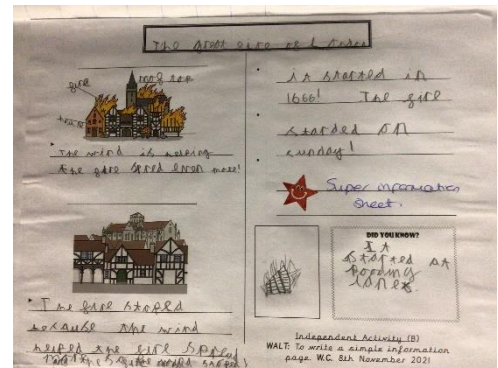 The great fire of London
fire
roof top
The wind is helping
the fire spred even more!
The fire stoped
because the wind
helped the fire spread
it started in
1666! The fire
started on
sunday!
Super information
sheet.
DID YOU KNOW?
It
started at
Pooding
lane.
Independent Activity (B)
WALT: To write a simple information
page. W.C. 8th November 2021